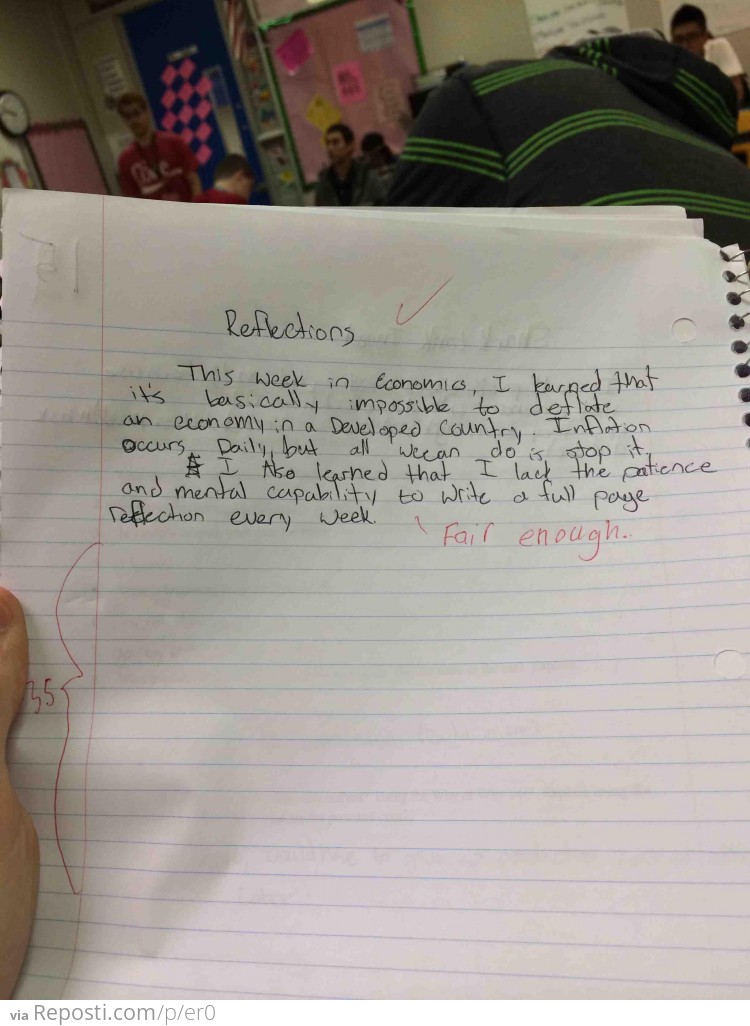 Reflections
This week in Economics, I learned that
it's basically impossible to deflate
an economy in a Developed Country. Inflation
occurs Daily, but all we can do is stop it.
I Also learned that I lack the patience
and mental capability to write a full page
reflection every week.
Fair enough..
35
via Reposti.com/p/er0